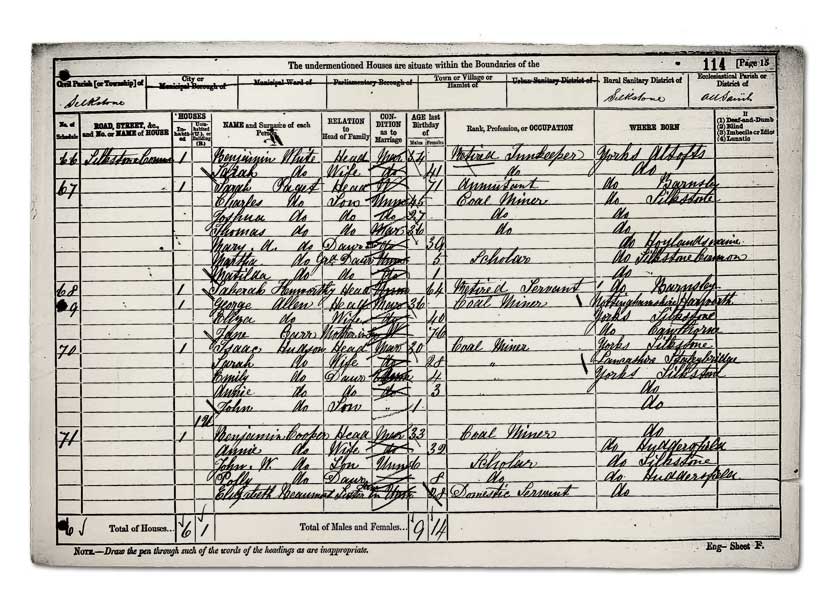 The undermentioned Houses are situate within the Boundaries of the
114 [Page 15
Civil Parish [or Township] of
City or Municipal Borough of
Municipal Ward of
Parliamentary Borough of
Town or Village or Hamlet of
Urban Sanitary District of
Rural Sanitary District of
Ecclesiastical Parish or District of
Silkstone Silkstone All Saints
No. of Schedule
ROAD, STREET, &c., and No. or NAME of HOUSE
HOUSES
Inhabited
Uninhabited (U.), or Building (B.)
NAME and Surname of each Person
RELATION to Head of Family
CONDITION as to Marriage
AGE last Birthday of
Males Females
Rank, Profession, or OCCUPATION
WHERE BORN
If
(1) Deaf-and-Dumb
(2) Blind
(3) Imbecile or Idiot
(4) Lunatic
66 Silkstone Common 1 Benjamin White Head Mar 54 Retired Innkeeper Yorks Altofts
Sarah do Wife do 41 do do
67 1 Sarah Paget Head W 71 Annuitant do Barnsley
Charles do Son Unm 45 Coal Miner do Silkstone
Joshua do do do 27 do do
Thomas do do Mar 36 do do
Mary A. do Daur do 39 do Hoylandswaine
Martha do Gr Daur Unm 5 Scholar do Silkstone Common
Matilda do do do 1 do
68 1 Head Unm 64 Retired Servant do Barnsley
69 1 George Allen Head Mar 36 Coal Miner Nottinghamshire Harworth
Eliza do Wife do 40 Yorks Silkstone
Jane Burr W 76 do Cawthorne
70 1 Isaac Hudson Head Mar 30 Coal Miner Yorks Silkstone
Sarah do Wife do 28 " Lancashire Stalybridge
Emily do Daur 4 " Yorks Silkstone
Annie do do do 3 do
John do Son " 1 do
1U
71 1 Benjamin Cooper Head Mar 33 Coal Miner do
Annie do Wife do 32 do Huddersfield
John W. do Son Unm 6 Scholar do Silkstone
Polly do Daur 8 do do Huddersfield
Elizabeth Beaumont Sister in 28 Domestic Servant do
6 Total of Houses... 6 1 Total of Males and Females... 9 14
NOTE.—Draw the pen through such of the words of the headings as are inappropriate.
Eng—Sheet F.